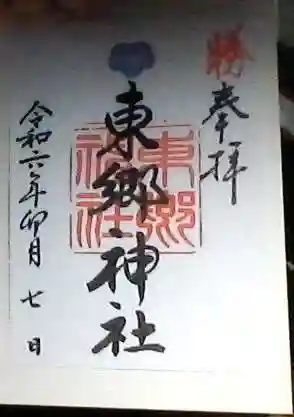 勝
奉拝
東郷神社
東郷神社
令和六年卯月七日